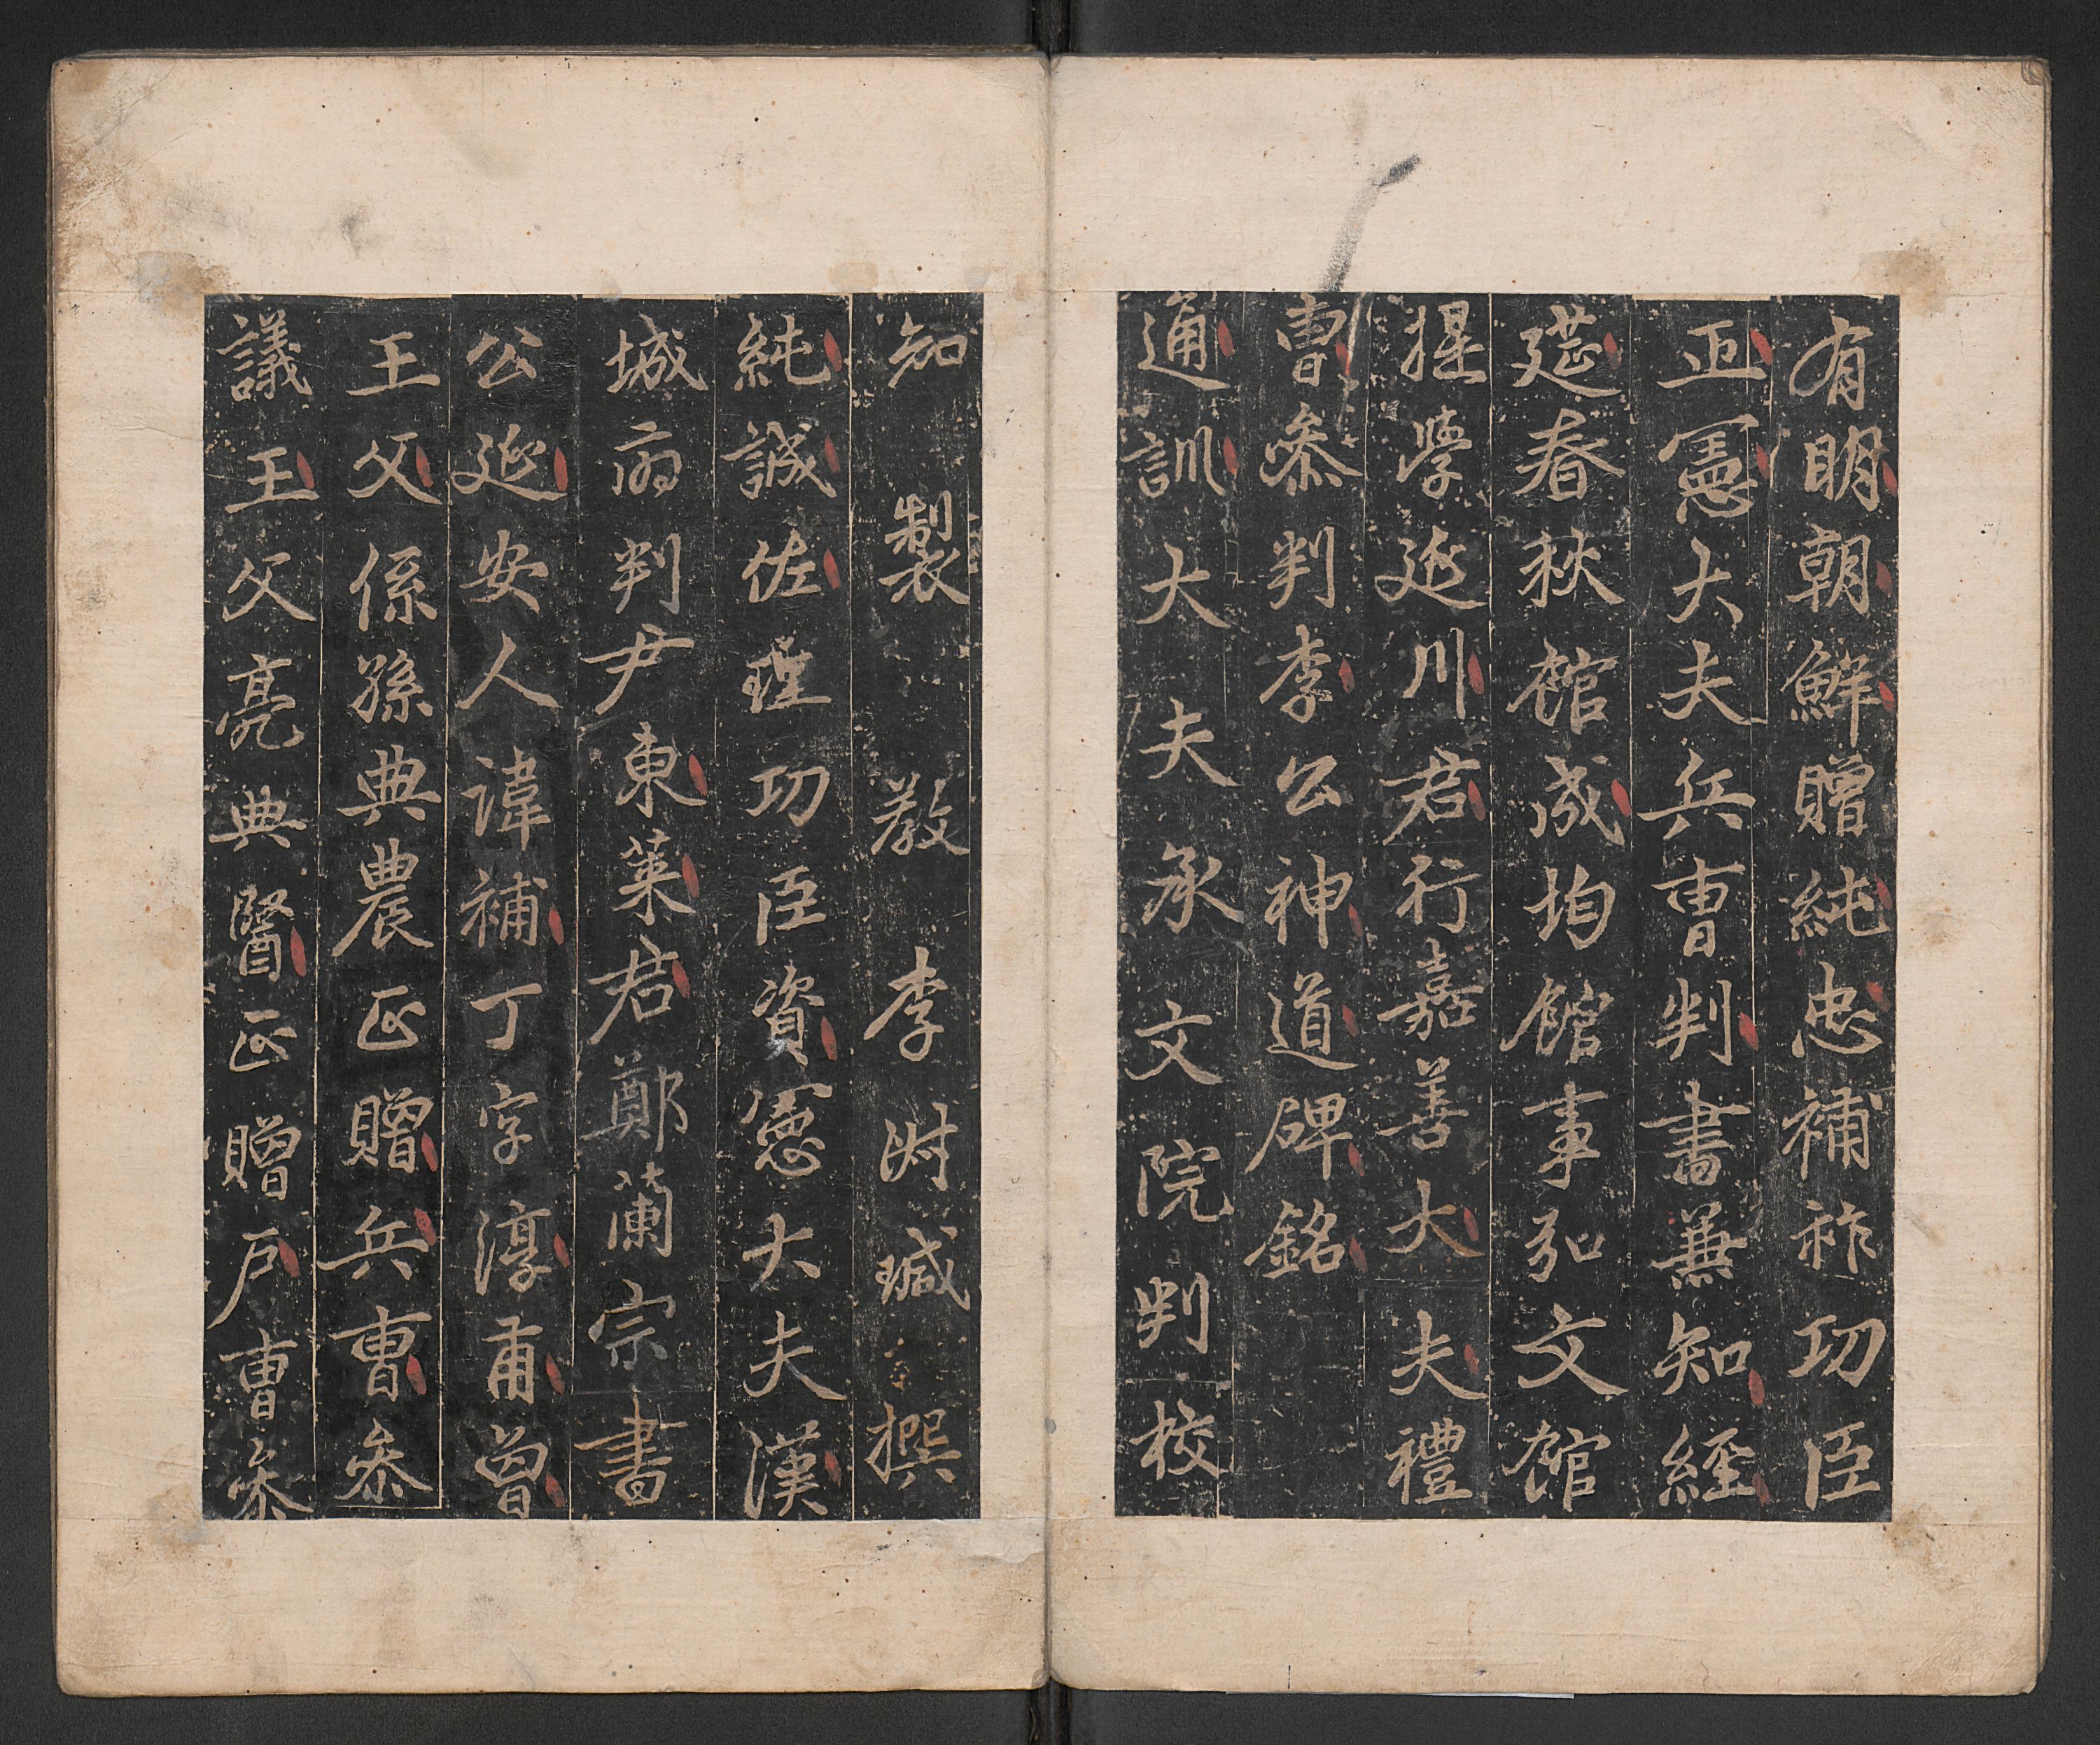 有明朝鮮贈純忠補祚功臣
正憲大夫兵曹判書兼知經
筵春秋館成均館事弘文館
提學延川君行嘉善大夫禮
曹參判李公神道碑銘
通訓大夫承文院判校
知製敎李時瑊撰
純誠佐理功臣資憲大夫漢
城府判尹東萊君鄭蘭宗書
公延安人諱補丁字淳甫曾
王父係孫典農正贈兵曹參
議王父亮典醫正贈戶曹參